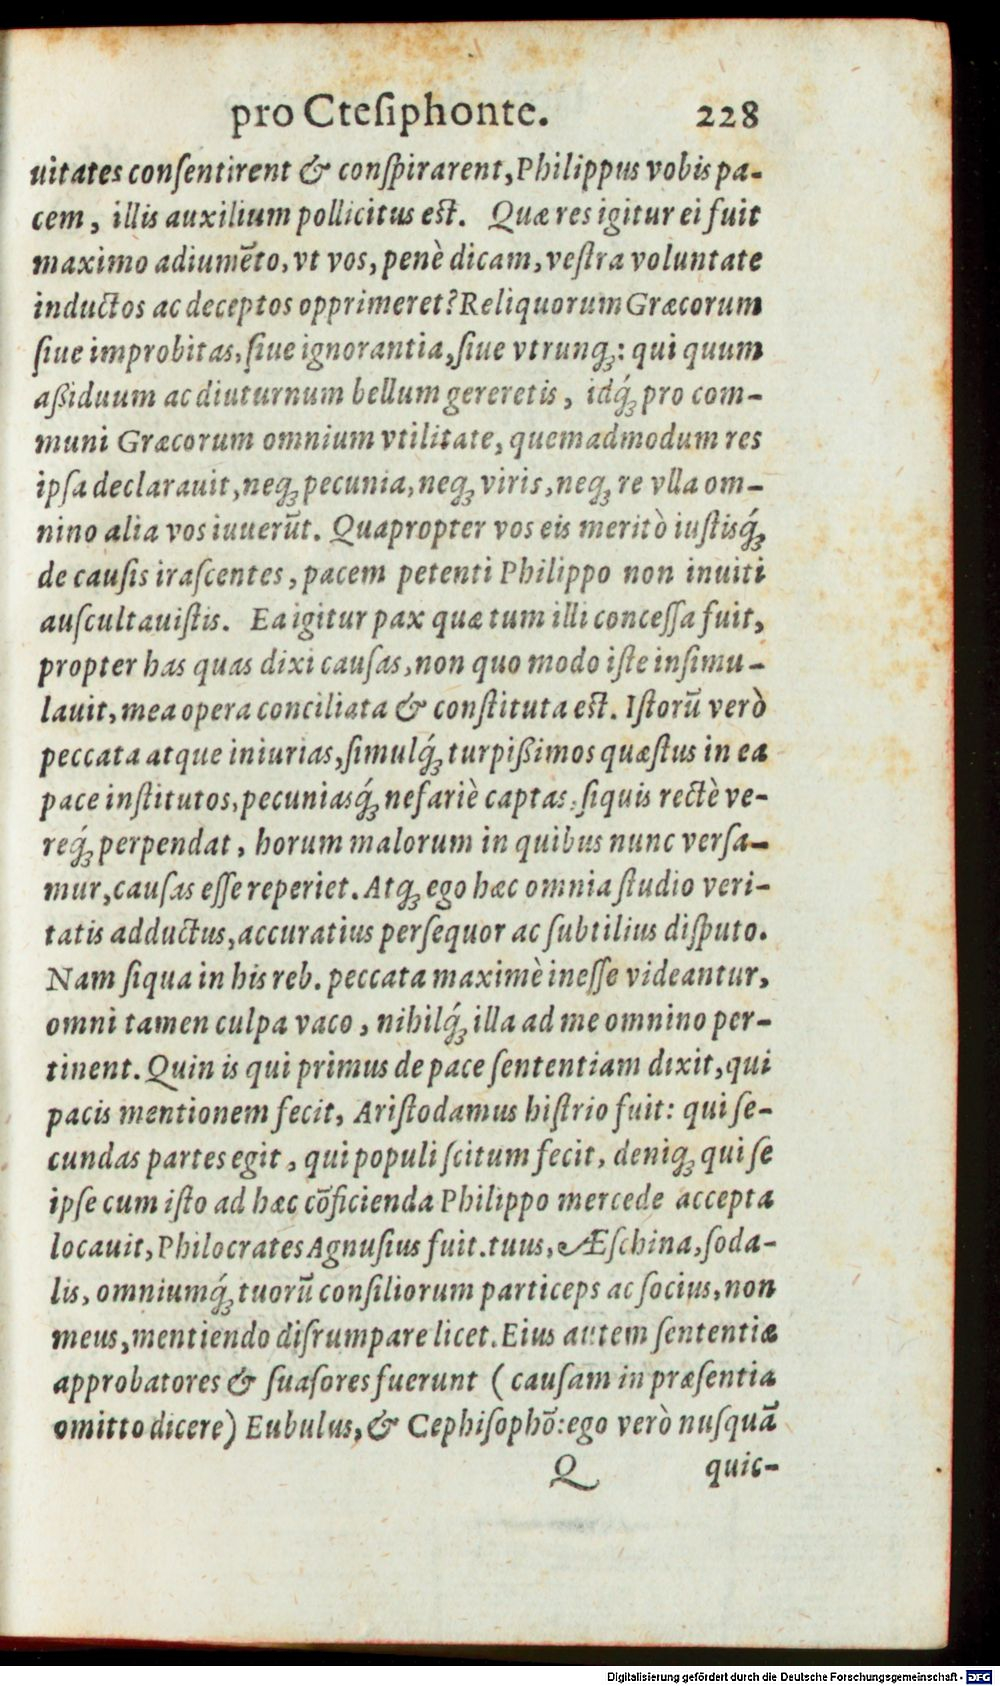 pro Cteſiphonte. 228
uitates conſentirent & conſpirarent, Philippus vobis pa-
cem, illis auxilium pollicitus est. Quæ res igitur ei fuit
maximo adiumẽto, vt vos, penè dicam, veſtra voluntate
inductos ac deceptos opprimeret? Reliquorum Græcorum
ſiue improbitas, ſiue ignorantia, ſiue vtrunq́;: qui quum
aßiduum ac diuturnum bellum gereretis, idq́; pro com-
muni Græcorum omnium vtilitate, quemadmodum res
ipſa declarauit, neq; pecunia, neq; viris, neq; re vlla om-
nino alia vos iuuerũt. Quapropter vos eis meritò iuſtisq́;
de cauſis iraſcentes, pacem petenti Philippo non inuiti
auſcultauiſtis. Ea igitur pax quæ tum illi conceſſa fuit,
propter has quas dixi cauſas, non quo modo iſte inſimu-
lauit, mea opera conciliata & conſtituta eſt. Iſtorũ verò
peccata atque iniurias, ſimulq́; turpißimos quæſtus in ea
pace inſtitutos, pecuniasq́; nefariè captas, ſiquis rectè ve-
req́; perpendat, horum malorum in quibus nunc verſa-
mur, cauſas eſſe reperiet. Atq; ego hæc omnia ſtudio veri-
tatis adductus, accuratius perſequor ac ſubtilius diſputo.
Nam ſiqua in his reb. peccata maximè ineſſe videantur,
omni tamen culpa vaco, nihilq́; illa ad me omnino per-
tinent. Quin is qui primus de pace ſententiam dixit, qui
pacis mentionem fecit, Ariſtodamus hiſtrio fuit: qui ſe-
cundas partes egit, qui populi ſcitum fecit, deniq; qui ſe
ipſe cum iſto ad hæc cõficienda Philippo mercede accepta
locauit, Philocrates Agnuſius fuit. tuus, Æſchina, ſoda-
lis, omniumq́; tuorũ conſiliorum particeps ac ſocius, non
meus, mentiendo diſrumpare licet. Eius autem ſententiæ
approbatores & ſuaſores fuerunt (cauſam in præſentia
omitto dicere) Eubulus, & Cephiſophõ: ego verò nuſquã
Q quic-
Digitalisierung gefördert durch die Deutsche Forschungsgemeinschaft - DFG